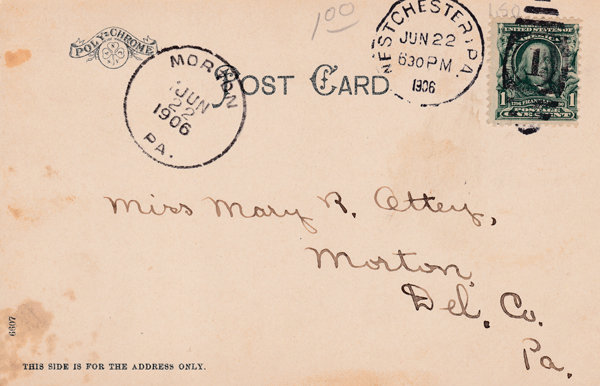 1.00
1.50
POLY-CHROME
POST CARD
WESTCHESTER, PA.
JUN 22
630 PM
1906
MORTON
JUN
22
1906
PA.
UNITED STATES OF AMERICA
1 1
POSTAGE
ONE CENT
Miss Mary R. Ottey,
Morton,
Del. Co.
Pa.
6607
THIS SIDE IS FOR THE ADDRESS ONLY.